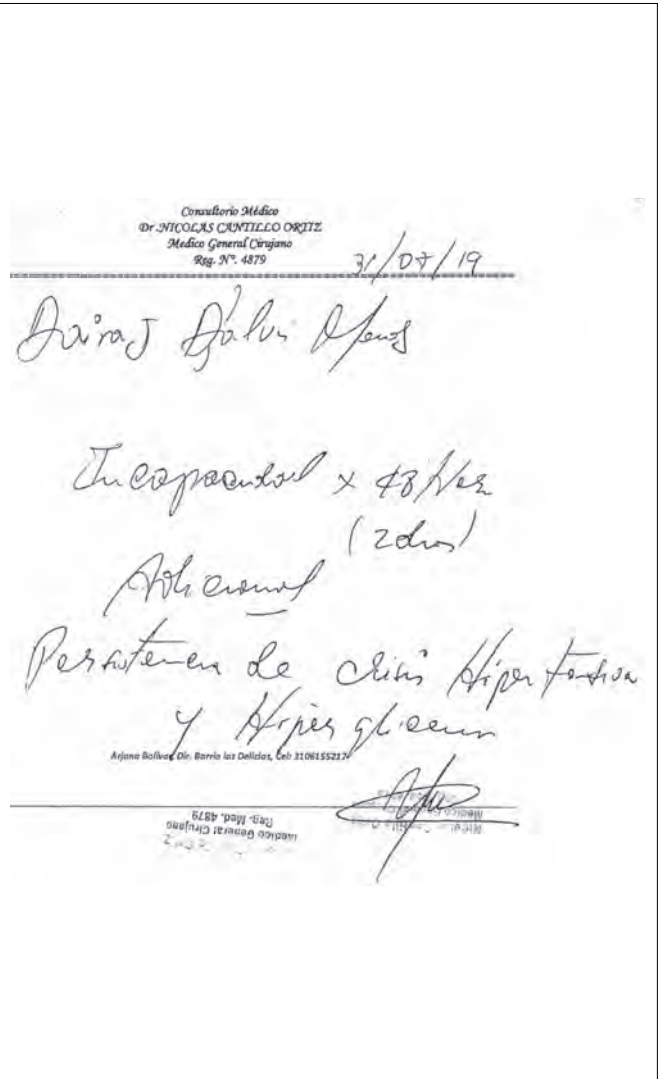 Consultorio Médico
Dr. NICOLAS CANTILLO ORTIZ
Medico General Cirujano
Reg. Nº. 4879
31/07/19
Incapacidad x 48 Hrs
(2 dias)
Adicional
Persistencia de Crisis Hipertensiva
y Hiperglicemia
Arjona Bolivar, Dir. Barrio las Delicias, Cel: 3106155217
Medico General Cirujano
Reg. Med. 4879